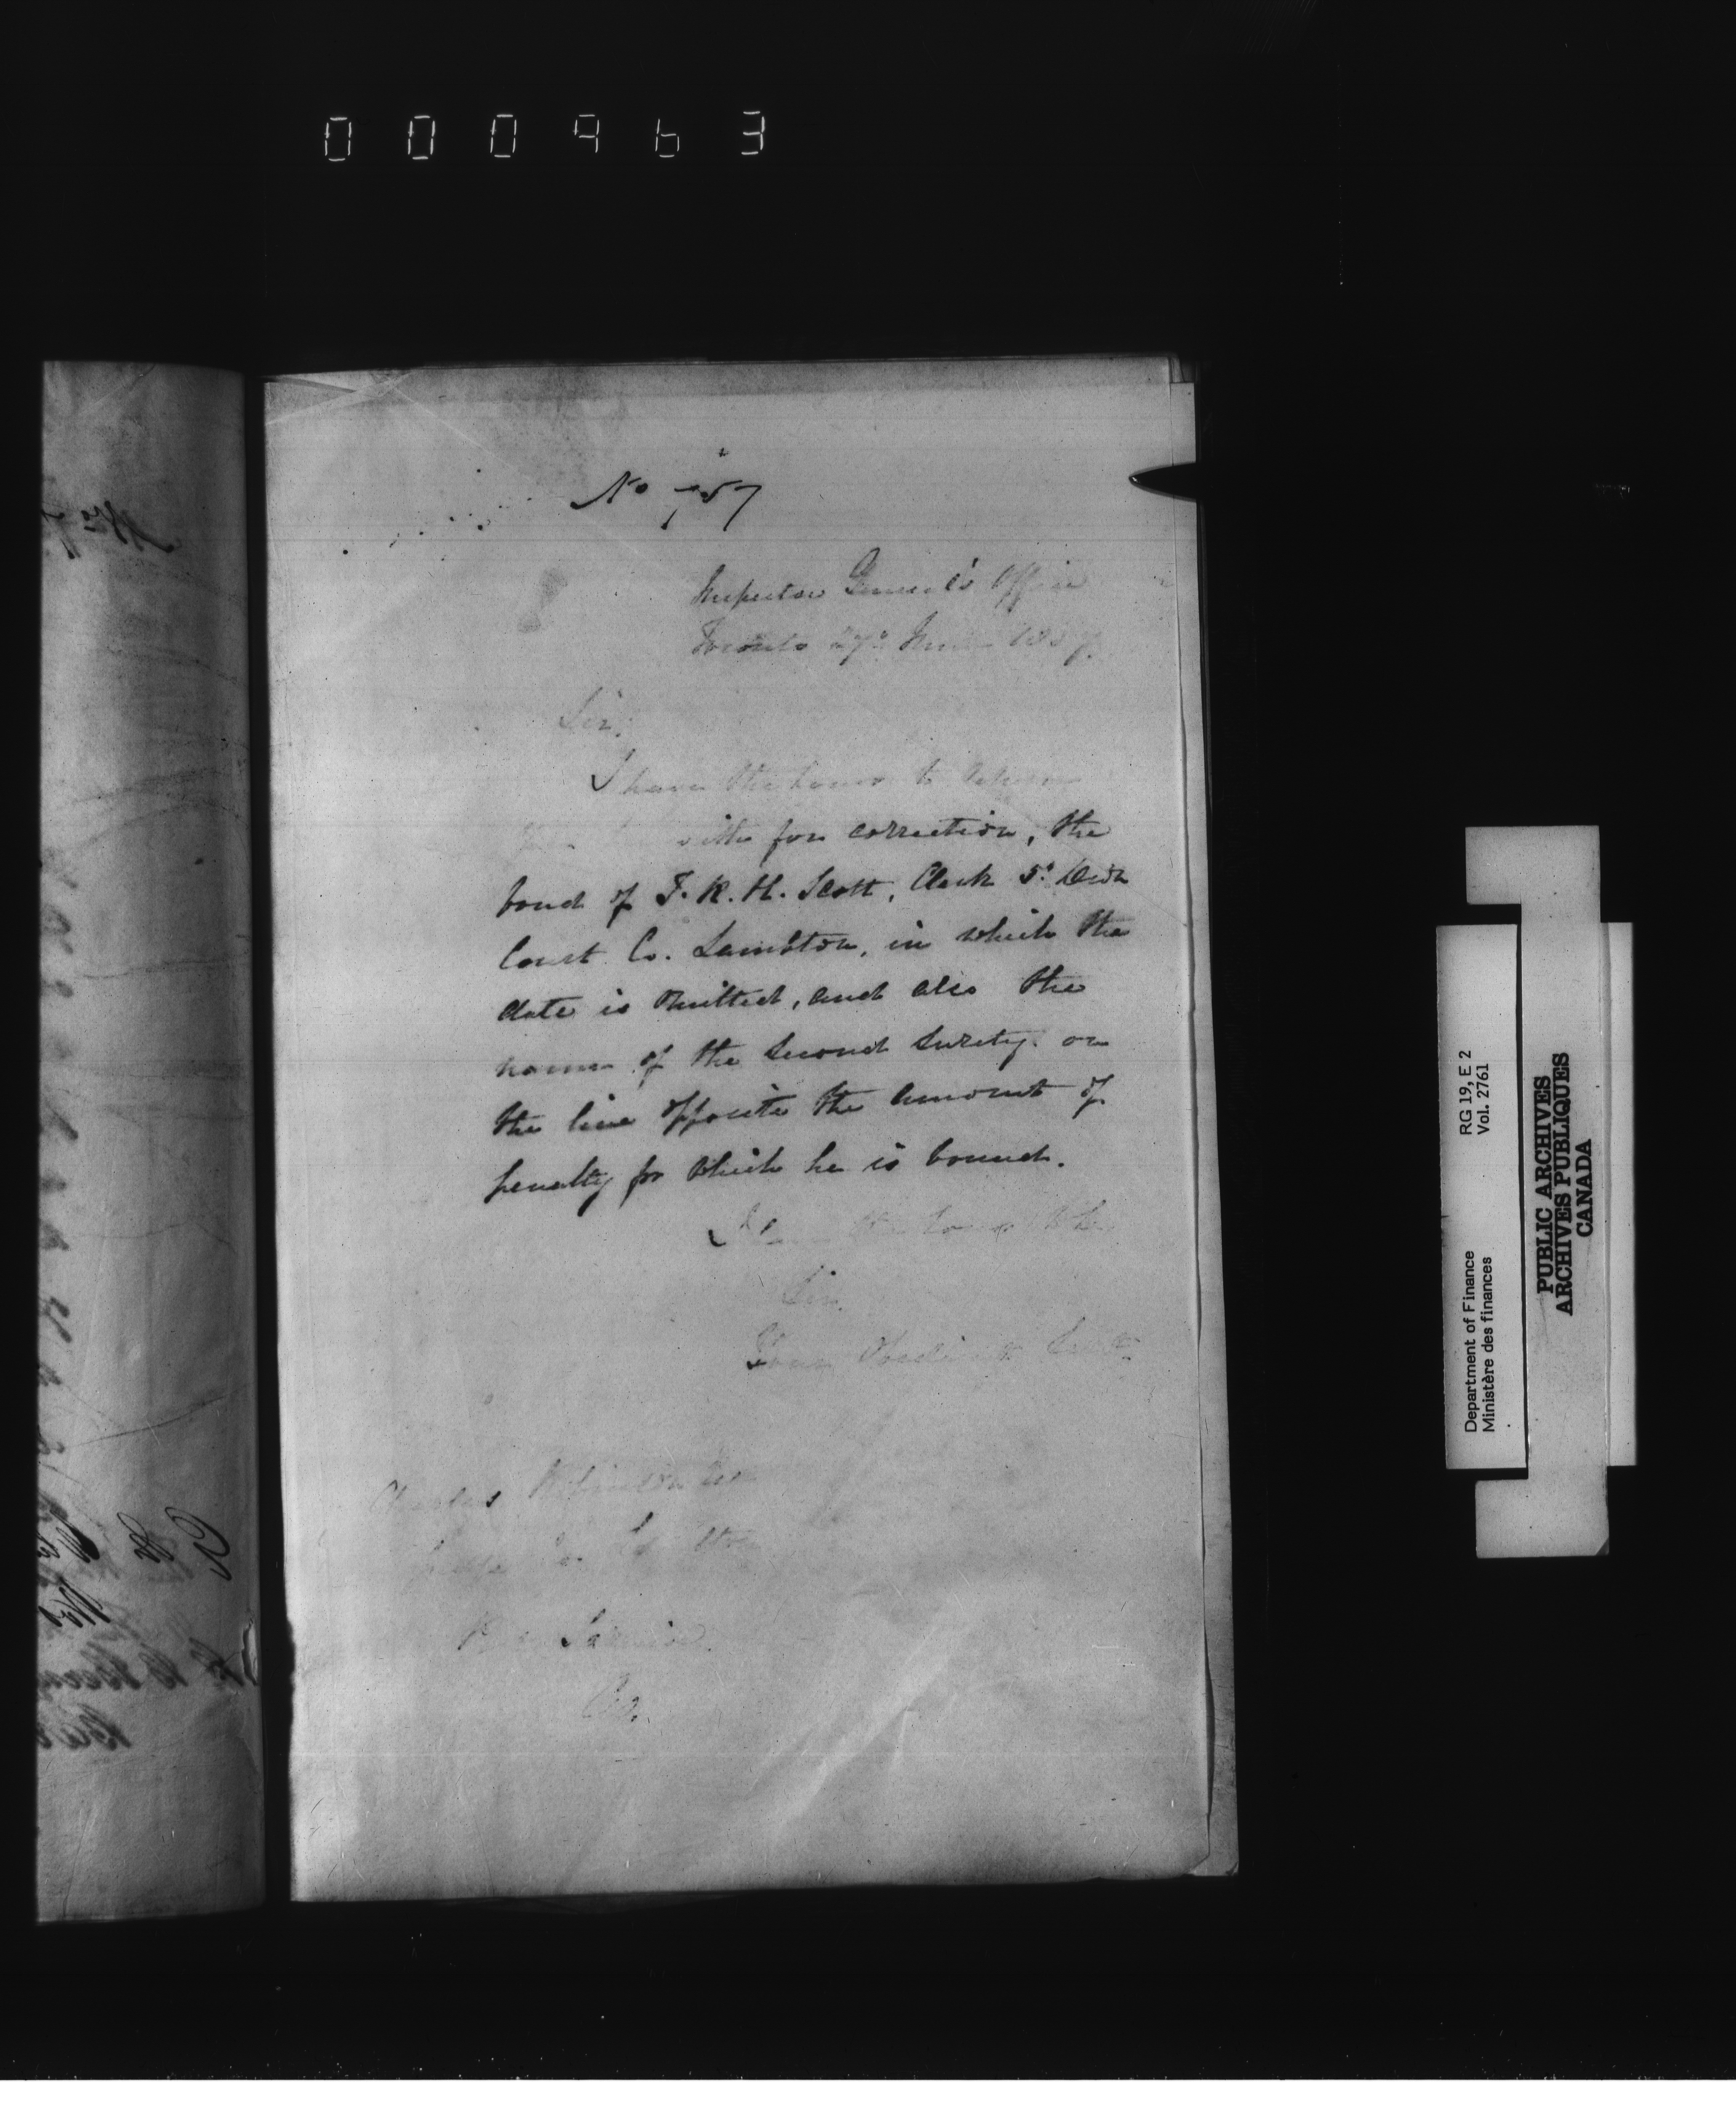 000963
No 757
Inspector General's Office
Toronto 27th June 1857.
Sir,
I have the honor to return
with for correction, the
bond of F. R. H. Scott, Clerk 5th Divn
Court Co. Lambton, in which the
date is omitted, and also the
name of the second surety on
the line opposite the amount of
penalty for which he is bound.
I have the honor to be
Sir,
Your Obedient Servt
Charles Robinson
Judge Co. Lambton
Port Sarnia
RG 19, E 2
Vol. 2761
Department of Finance
Ministère des finances
PUBLIC ARCHIVES
ARCHIVES PUBLIQUES
CANADA